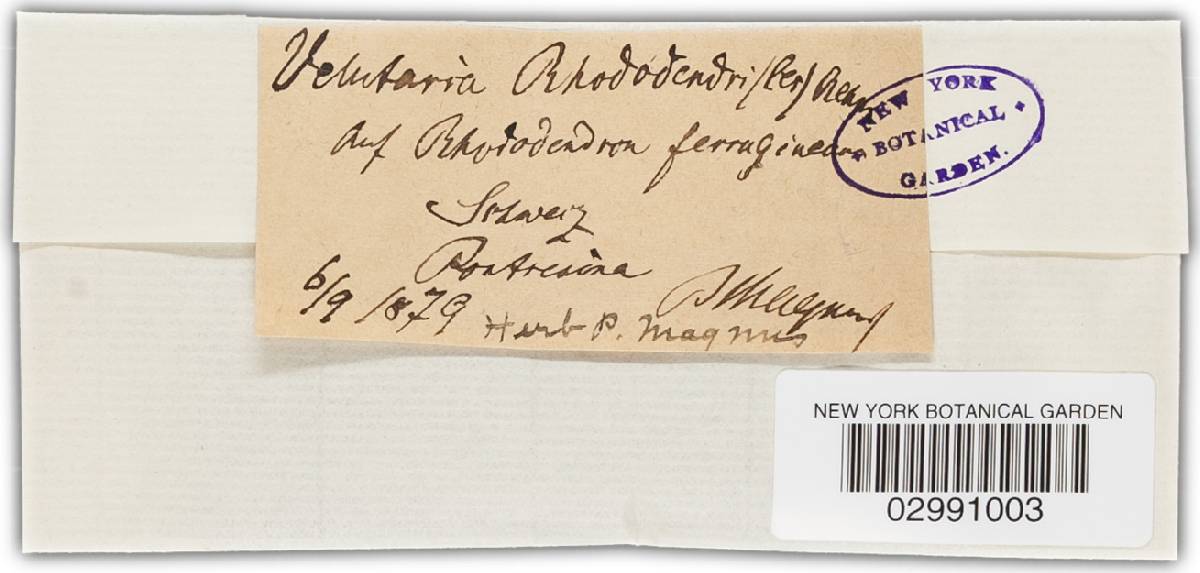 Velutaria Rhododendri (Ces) Rehm
auf Rhododendron ferrugineum
Schweiz
Pontresina
6/9 1879 PMagnus
Herb P. Magnus
NEW YORK
BOTANICAL
GARDEN.
NEW YORK BOTANICAL GARDEN
02991003